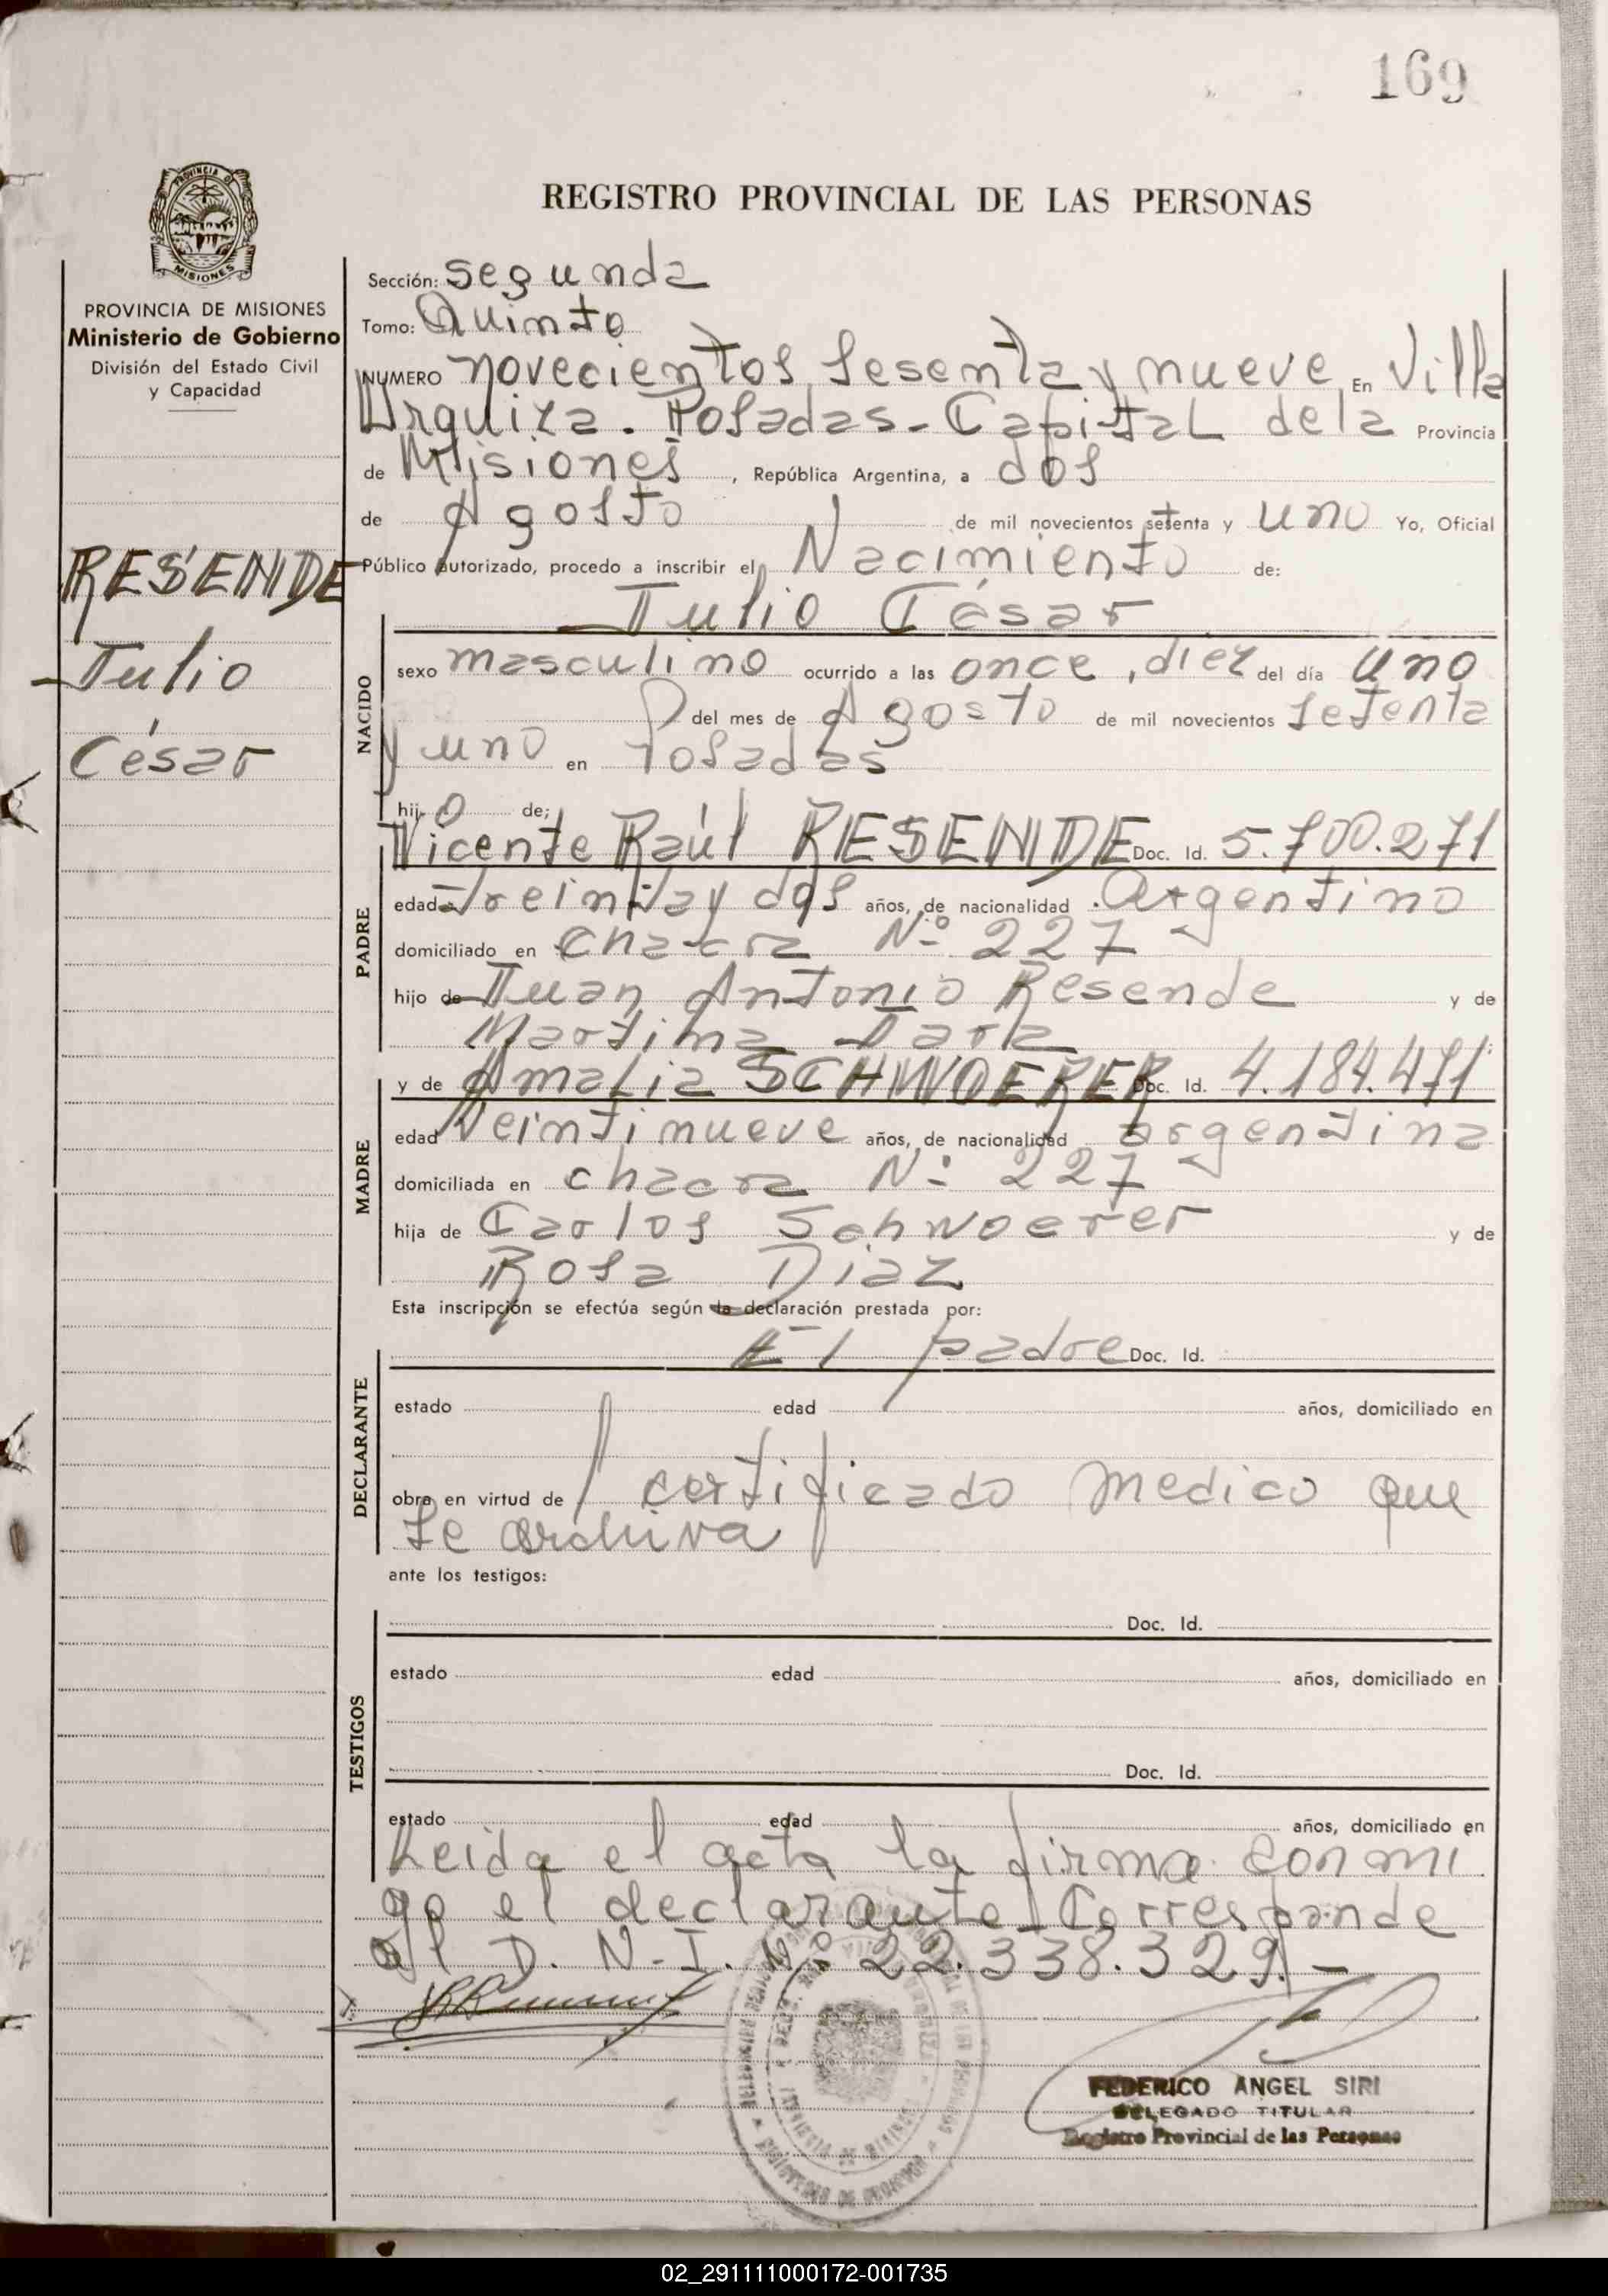 169
PROVINCIA DE
MISIONES
REGISTRO PROVINCIAL DE LAS PERSONAS
PROVINCIA DE MISIONES
Ministerio de Gobierno
División del Estado Civil
y Capacidad
RESENDE
Julio
César
Sección: Segunda
Tomo: Quinto
NUMERO novecientos sesenta y nueve En Villa
Urquiza. Posadas - Capital de la Provincia
de Misiones, República Argentina, a dos
de Agosto de mil novecientos setenta y uno Yo, Oficial
Público autorizado, procedo a inscribir el Nacimiento de:
Julio César
NACIDO
sexo masculino ocurrido a las once, diez del día uno
del mes de Agosto de mil novecientos setenta
y uno en Posadas
hijo de;
Vicente Raúl RESENDE Doc. Id. 5.700.271
PADRE
edad treinta y dos años, de nacionalidad Argentino
domiciliado en Chacra Nº 227
hijo de Juan Antonio Resende y de
Martima
y de Amalia SCHWOERER Doc. Id. 4.184.471
MADRE
edad Veintinueve años, de nacionalidad argentina
domiciliada en chacra Nº 227
hija de Carlos Schwoerer y de
Rosa Diaz
Esta inscripción se efectúa según la declaración prestada por:
El padre Doc. Id.
DECLARANTE
estado edad años, domiciliado en
obra en virtud de certificado medico que
se archiva
ante los testigos:
Doc. Id.
TESTIGOS
estado edad años, domiciliado en
Doc. Id.
estado edad años, domiciliado en
Leida el acta la firma conmi
go el declarante. Corresponde
al D. N. I. Nº 22.338.329. -
FEDERICO ANGEL SIRI
DELEGADO TITULAR
Registro Provincial de las Personas
02_291111000172-001735